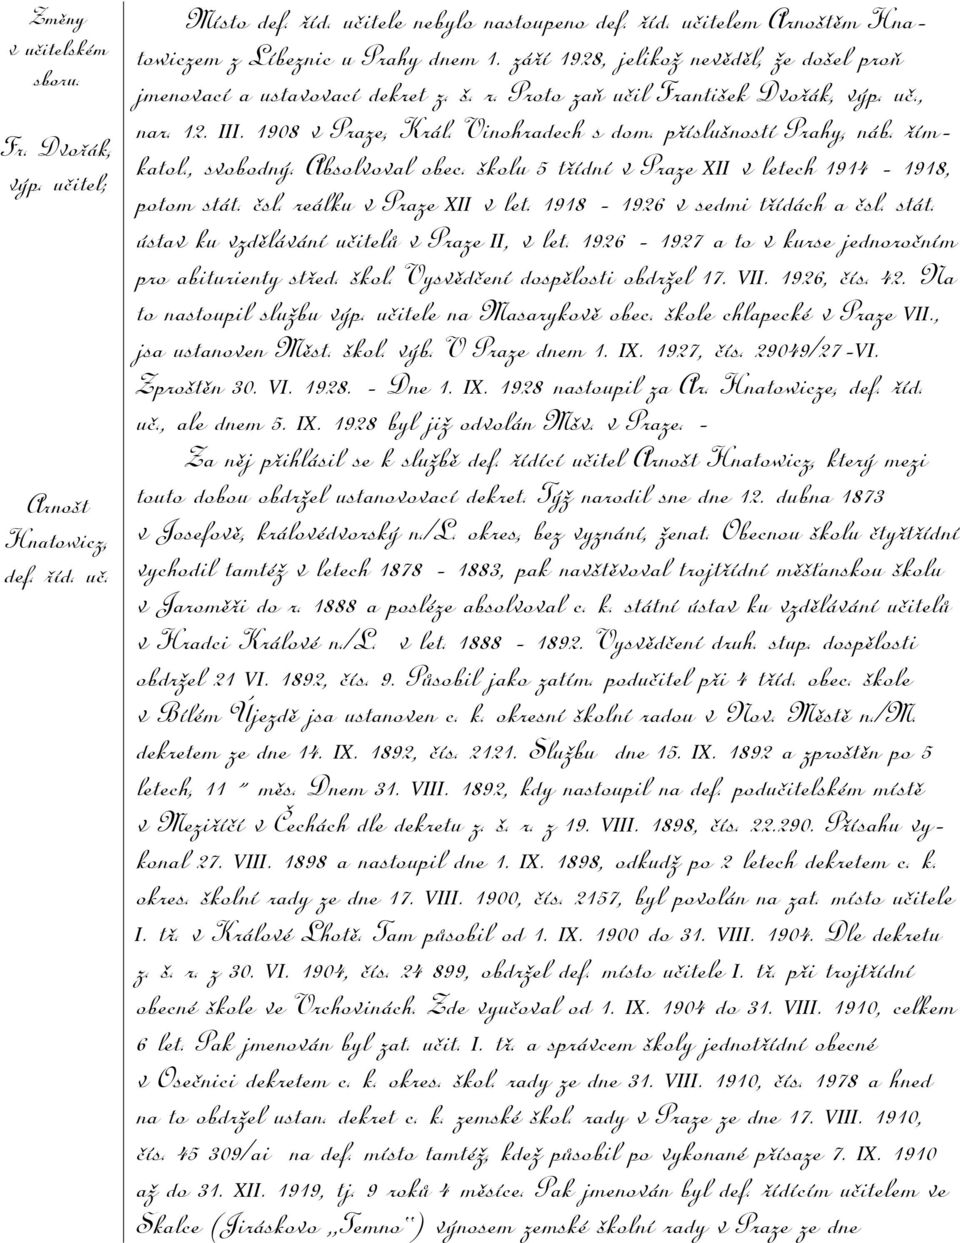 Změny
v učitelském
sboru.
Fr. Dvořák,
výp. učitel;
Arnošt
Hnatowicz,
def. říd. uč.
Místo def. říd. učitele nebylo nastoupeno def. říd. učitelem Arnoštěm Hna -
towiczem z Líbeznic u Prahy dnem 1. září 1928, jelikož nevěděl, že došel proň
jmenovací a ustavovací dekret z. š. r. Proto zaň učil František Dvořák, výp. uč.,
nar. 12. III. 1908 v Praze, Král. Vinohradech s dom. příslušností Prahy, náb. řím -
katol., svobodný. Absolvoval obec. školu 5 třídní v Praze XII v letech 1914 - 1918,
potom stát. čsl. reálku v Praze XII v let. 1918 - 1926 v sedmi třídách a čsl. stát.
ústav ku vzdělávání učitelů v Praze II, v let. 1926 - 1927 a to v kurse jednoročním
pro abiturienty střed. škol. Vysvědčení dospělosti obdržel 17. VII. 1926, čís. 42. Na
to nastoupil službu výp. učitele na Masarykově obec. škole chlapecké v Praze VII.,
jsa ustanoven Měst. škol. výb. V Praze dnem 1. IX. 1927, čís. 29049/27 -VI.
Zproštěn 30. VI. 1928. - Dne 1. IX. 1928 nastoupil za Ar. Hnatowicze, def. říd.
uč., ale dnem 5. IX. 1928 byl již odvolán Mšv. v Praze. -
Za něj přihlásil se k službě def. řídící učitel Arnošt Hnatowicz, který mezi
touto dobou obdržel ustanovovací dekret. Týž narodil sne dne 12. dubna 1873
v Josefově, královédvorský n./L. okres, bez vyznání, ženat. Obecnou školu čtyřtřídní
vychodil tamtéž v letech 1878 - 1883, pak navštěvoval trojtřídní měšťanskou školu
v Jaroměři do r. 1888 a posléze absolvoval c. k. státní ústav ku vzdělávání učitelů
v Hradci Králové n./L. v let. 1888 - 1892. Vysvědčení druh. stup. dospělosti
obdržel 21 VI. 1892, čís. 9. Působil jako zatím. podučitel při 4 tříd. obec. škole
v Bílém Újezdě jsa ustanoven c. k. okresní školní radou v Nov. Městě n./M.
dekretem ze dne 14. IX. 1892, čís. 2121. Službu dne 15. IX. 1892 a zproštěn po 5
letech, 11 " měs. Dnem 31. VIII. 1892, kdy nastoupil na def. podučitelském místě
v Meziříčí v Čechách dle dekretu z. š. r. z 19. VIII. 1898, čís. 22.290. Přísahu vy -
konal 27. VIII. 1898 a nastoupil dne 1. IX. 1898, odkudž po 2 letech dekretem c. k.
okres. školní rady ze dne 17. VIII. 1900, čís. 2157, byl povolán na zat. místo učitele
I. tř. v Králové Lhotě. Tam působil od 1. IX. 1900 do 31. VIII. 1904. Dle dekretu
z. š. r. z 30. VI. 1904, čís. 24 899, obdržel def. místo učitele I. tř. při trojtřídní
obecné škole ve Vrchovinách. Zde vyučoval od 1. IX. 1904 do 31. VIII. 1910, celkem
6 let. Pak jmenován byl zat. učit. I. tř. a správcem školy jednotřídní obecné
v Osečnici dekretem c. k. okres. škol. rady ze dne 31. VIII. 1910, čís. 1978 a hned
na to obdržel ustan. dekret c. k. zemské škol. rady v Praze ze dne 17. VIII. 1910,
čís. 45 309/ai na def. místo tamtéž, kdež působil po vykonané přísaze 7. IX. 1910
až do 31. XII. 1919, tj. 9 roků 4 měsíce. Pak jmenován byl def. řídícím učitelem ve
Skalce (Jiráskovo „Temno“) výnosem zemské školní rady v Praze ze dne